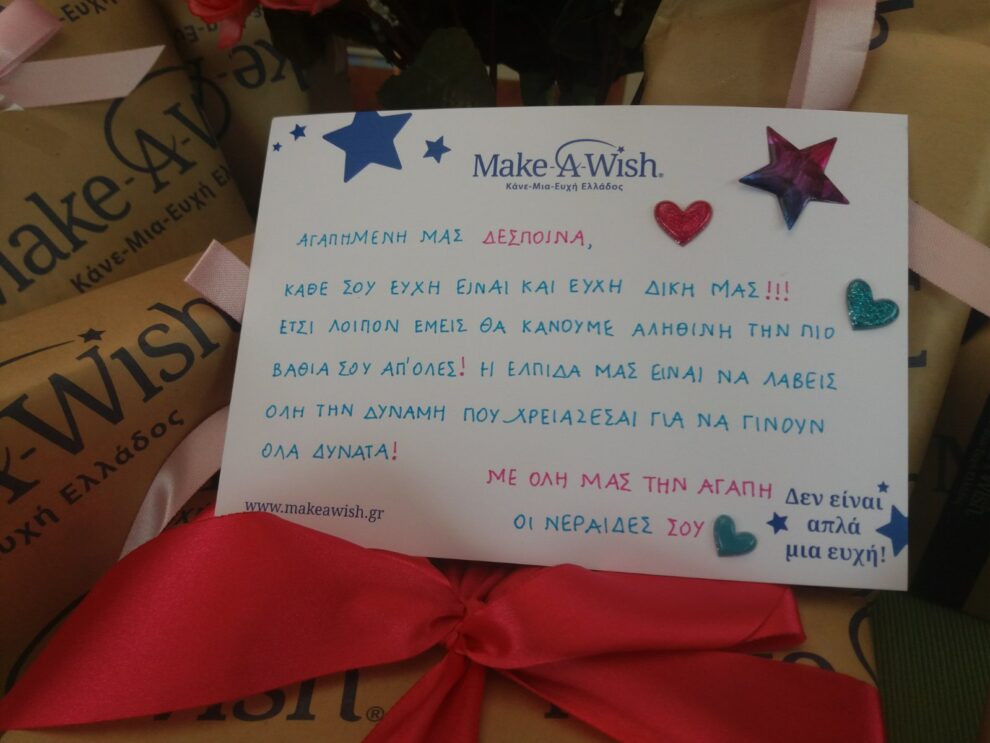 Make-A-Wish®
Κάνε-Μια-Ευχή Ελλάδος
ΑΓΑΠΗΜΕΝΗ ΜΑΣ ΔΕΣΠΟΙΝΑ,
ΚΑΘΕ ΣΟΥ ΕΥΧΗ ΕΙΝΑΙ ΚΑΙ ΕΥΧΗ ΔΙΚΗ ΜΑΣ!!!
ΕΤΣΙ ΛΟΙΠΟΝ ΕΜΕΙΣ ΘΑ ΚΑΝΟΥΜΕ ΑΛΗΘΙΝΗ ΤΗΝ ΠΙΟ
ΒΑΘΙΑ ΣΟΥ ΑΠ'ΟΛΕΣ! Η ΕΛΠΙΔΑ ΜΑΣ ΕΙΝΑΙ ΝΑ ΛΑΒΕΙΣ
ΟΛΗ ΤΗΝ ΔΥΝΑΜΗ ΠΟΥ ΧΡΕΙΑΖΕΣΑΙ ΓΙΑ ΝΑ ΓΙΝΟΥΝ
ΟΛΑ ΔΥΝΑΤΑ!
ΜΕ ΟΛΗ ΜΑΣ ΤΗΝ ΑΓΑΠΗ
ΟΙ ΝΕΡΑΙΔΕΣ ΣΟΥ
www.makeawish.gr
Δεν είναι
απλά
μια ευχή!
Make-A-W
Κάνε-Μια-Ευχή Ελ
Wish
Ευχή Ελλάδος
ish®